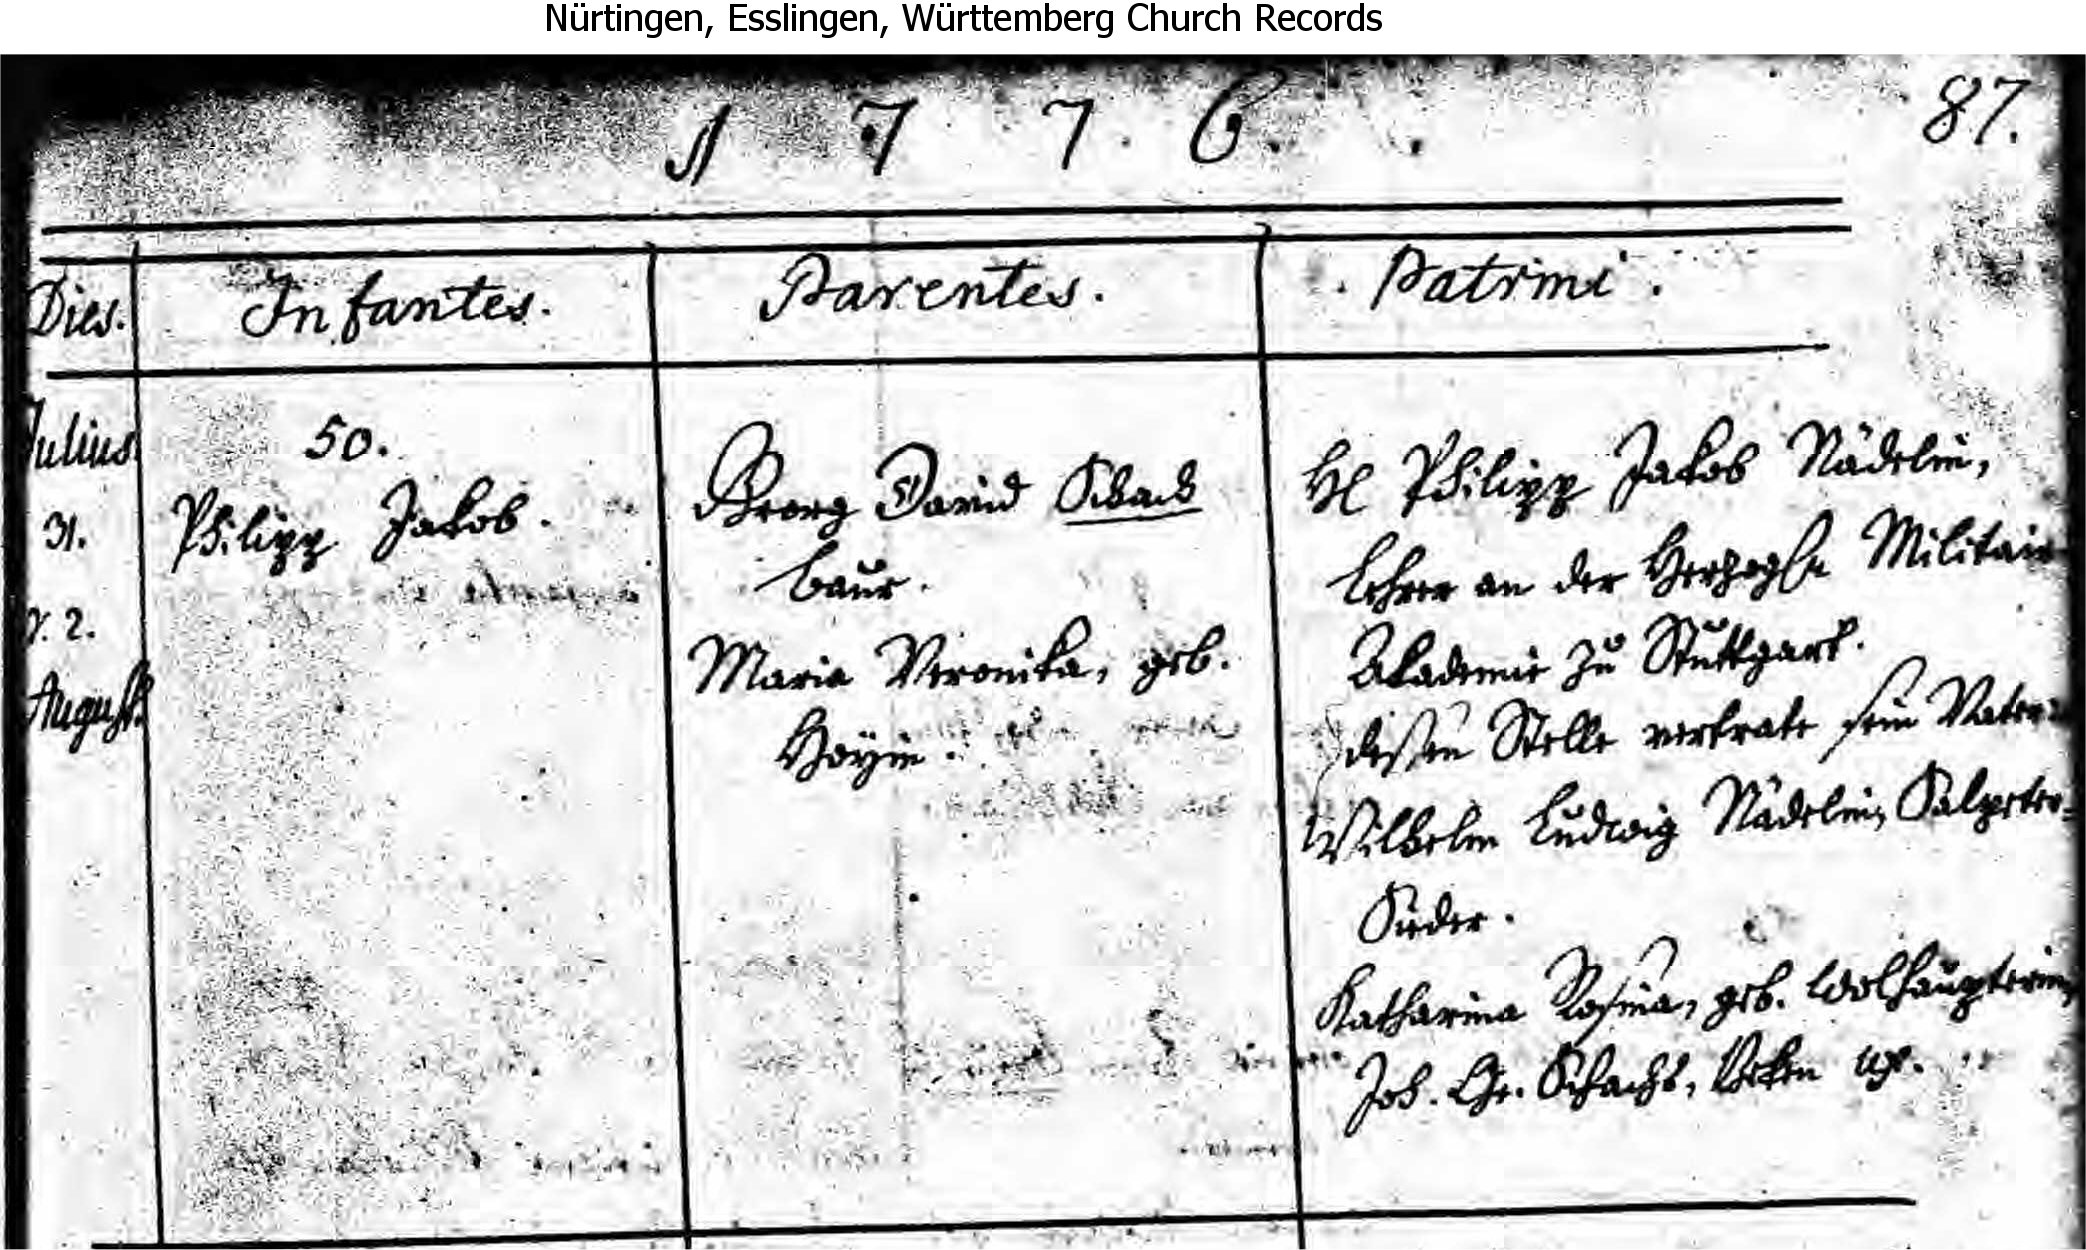 Nürtingen, Esslingen, Württemberg Church Records
1 7 7. 6.
87.
Dies. Infantes. Parentes. Patrini.
Julius
31.
2.
August.
50.
Philipp Jakob.
Georg David
baur.
Maria Veronika, geb.
Hl Philipp Jakob Nädelin,
Lehrer an der Herzogl. Militair
Akademie zu Stuttgart.
deßen Stelle vertrate sein Vater
Wilhelm Ludwig Nädelin, Salpeter-
Sieder.
Katharina Rosina, geb. Wolhaupterin,
Joh. Chr. Beken ux.